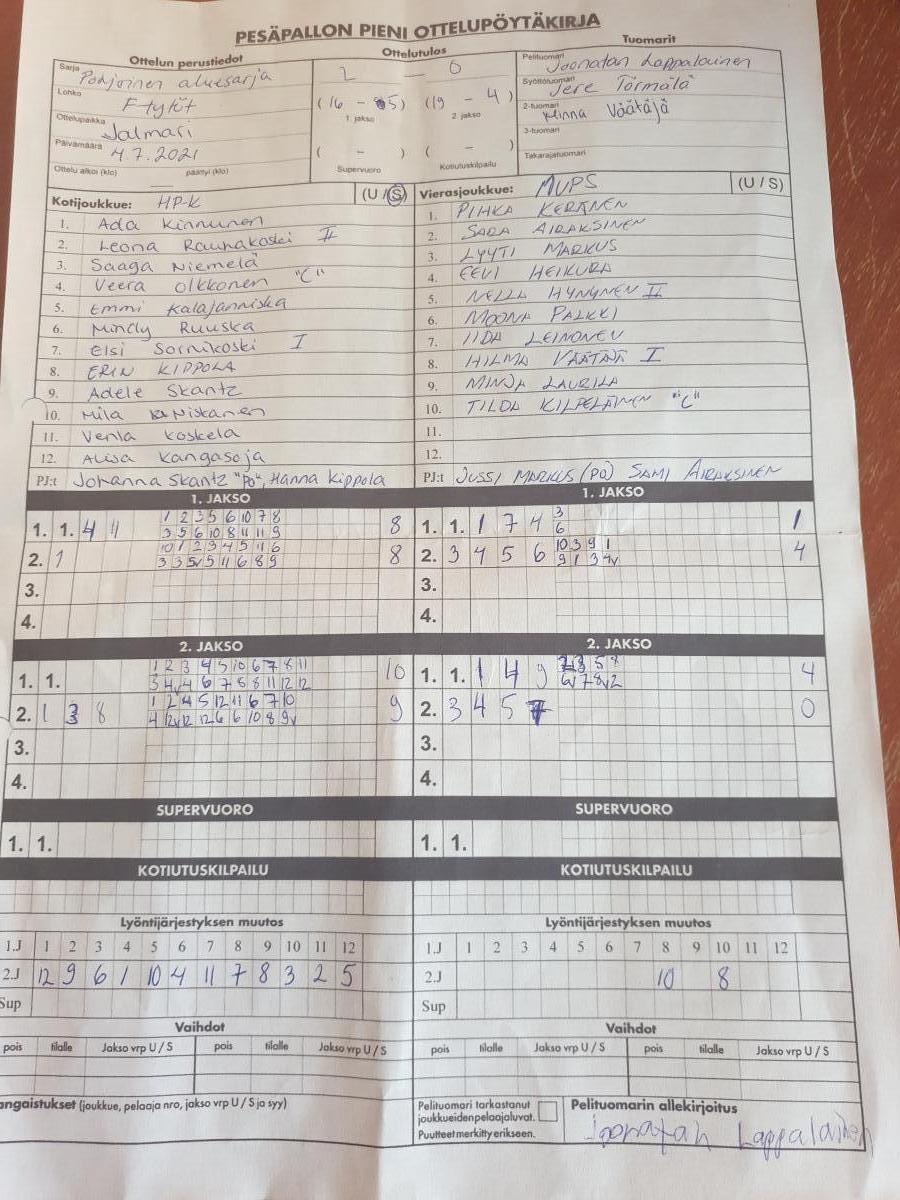 PESÄPALLON PIENI OTTELUPÖYTÄKIRJA
Ottelun perustiedot
Sarja Pohjoinen aluesarja
Lohko F-tytöt
Ottelupaikka Jalmari
Päivämäärä 4.7.2021
Ottelu alkoi (klo) — päättyi (klo)
Ottelutulos
2 — 0
(16 - 5) (19 - 4)
1. jakso 2. jakso
( - ) ( - )
Supervuoro Kotiutuskilpailu
Tuomarit
Pelituomari Joonatan Lappalainen
Syöttötuomari Jere Törmälä
2-tuomari Minna Väätäjä
3-tuomari
Takarajatuomari
Kotijoukkue: HP-K (U / S)
1. Ada Kinnunen
2. Leona Rauhakoski II
3. Saaga Niemelä
4. Veera Olkkonen "C"
5. Emmi Kalajanniska
6. Mindy Ruuska
7. Elsi Sornikoski I
8. ERIN KIPPOLA
9. Adele Skantz
10. Mila Niskanen
11. Venla Koskela
12. Alisa Kangasoja
PJ:t Johanna Skantz "PO", Hanna Kippola
Vierasjoukkue: MUPS (U / S)
1. PIHKA KERÄNEN
2. SARA AIRAKSINEN
3. LYYTI MARKUS
4. EEVI HEIKURA
5. NELLA HYNYNEN II
6. MOONA PALKKI
7. IIDA LEINONEN
8. HILMA VÄÄTÄJÄ I
9. MINJA LAURILA
10. TILDA KILPELÄINEN "C"
11.
12.
PJ:t JUSSI MARKUS (PO) SAMI AIRAKSINEN
1. JAKSO
1. 1. 4 11
1 2 3 5 6 10 7 8
3 5 6 10 8 11 11 9
8
2. 1
10 1 2 3 4 5 11 6
3 3 5v 5 11 6 8 9
8
3.
4.
1. JAKSO
1. 1. 1 7 4
3
6
1
2. 3 4 5 6
10 3 9 1
9 1 3 4v
4
3.
4.
2. JAKSO
1. 1.
1 2 3 4 5 10 6 7 8 11
3 4v 4 6 7 8 8 11 12 12
10
2. 1 3 8
1 2 4 5 12 11 6 7 10
4 12v 12 12 6 6 10 8 9v
9
3.
4.
2. JAKSO
1. 1. 1 4 9
3 5 8
6v 7 8v 2
4
2. 3 4 5 7
0
3.
4.
SUPERVUORO
1. 1.
SUPERVUORO
1. 1.
KOTIUTUSKILPAILU
KOTIUTUSKILPAILU
Lyöntijärjestyksen muutos
1.J 1 2 3 4 5 6 7 8 9 10 11 12
2.J 12 9 6 1 10 4 11 7 8 3 2 5
Sup
Lyöntijärjestyksen muutos
1.J 1 2 3 4 5 6 7 8 9 10 11 12
2.J 10 8
Sup
Vaihdot
pois tilalle Jakso vrp U / S pois tilalle Jakso vrp U / S
Vaihdot
pois tilalle Jakso vrp U / S pois tilalle Jakso vrp U / S
angaistukset (joukkue, pelaaja nro, jakso vrp U / S ja syy)
Pelituomari tarkastanut
joukkueiden pelaajaluvat.
Puutteet merkitty erikseen.
Pelituomarin allekirjoitus
Joonatan Lappalainen